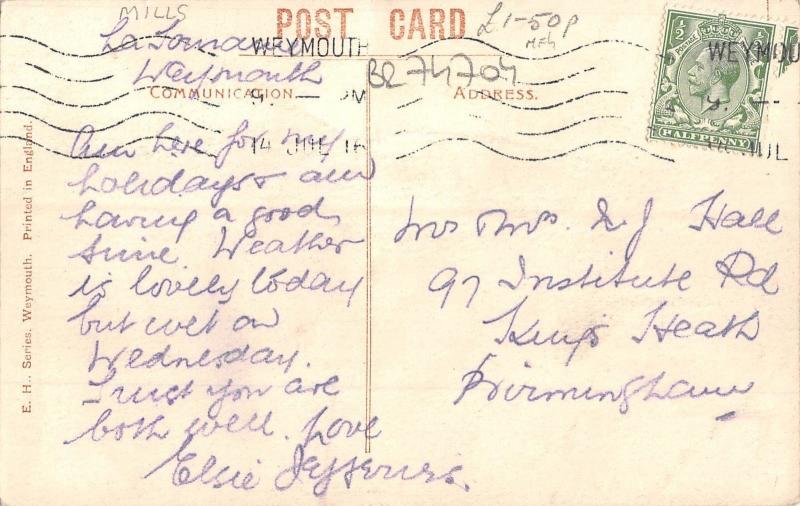 MILLS
POST CARD
£1-50p
La
WEYMOUTH
Weymouth
BR74704
COMMUNICATION.
ADDRESS.
14 JUL 16
½
POSTAGE
HALFPENNY
WEYMOU
JUL
Am here for my
holidays & am
having a good
time Weather
is lovely today
but wet on
Wednesday.
Trust you are
both well. Love
Elsie Jefferies.
Mr & Mrs. A J Hall
97 Institute Rd
Kings Heath
Birmingham
E. H., Series. Weymouth. Printed in England.